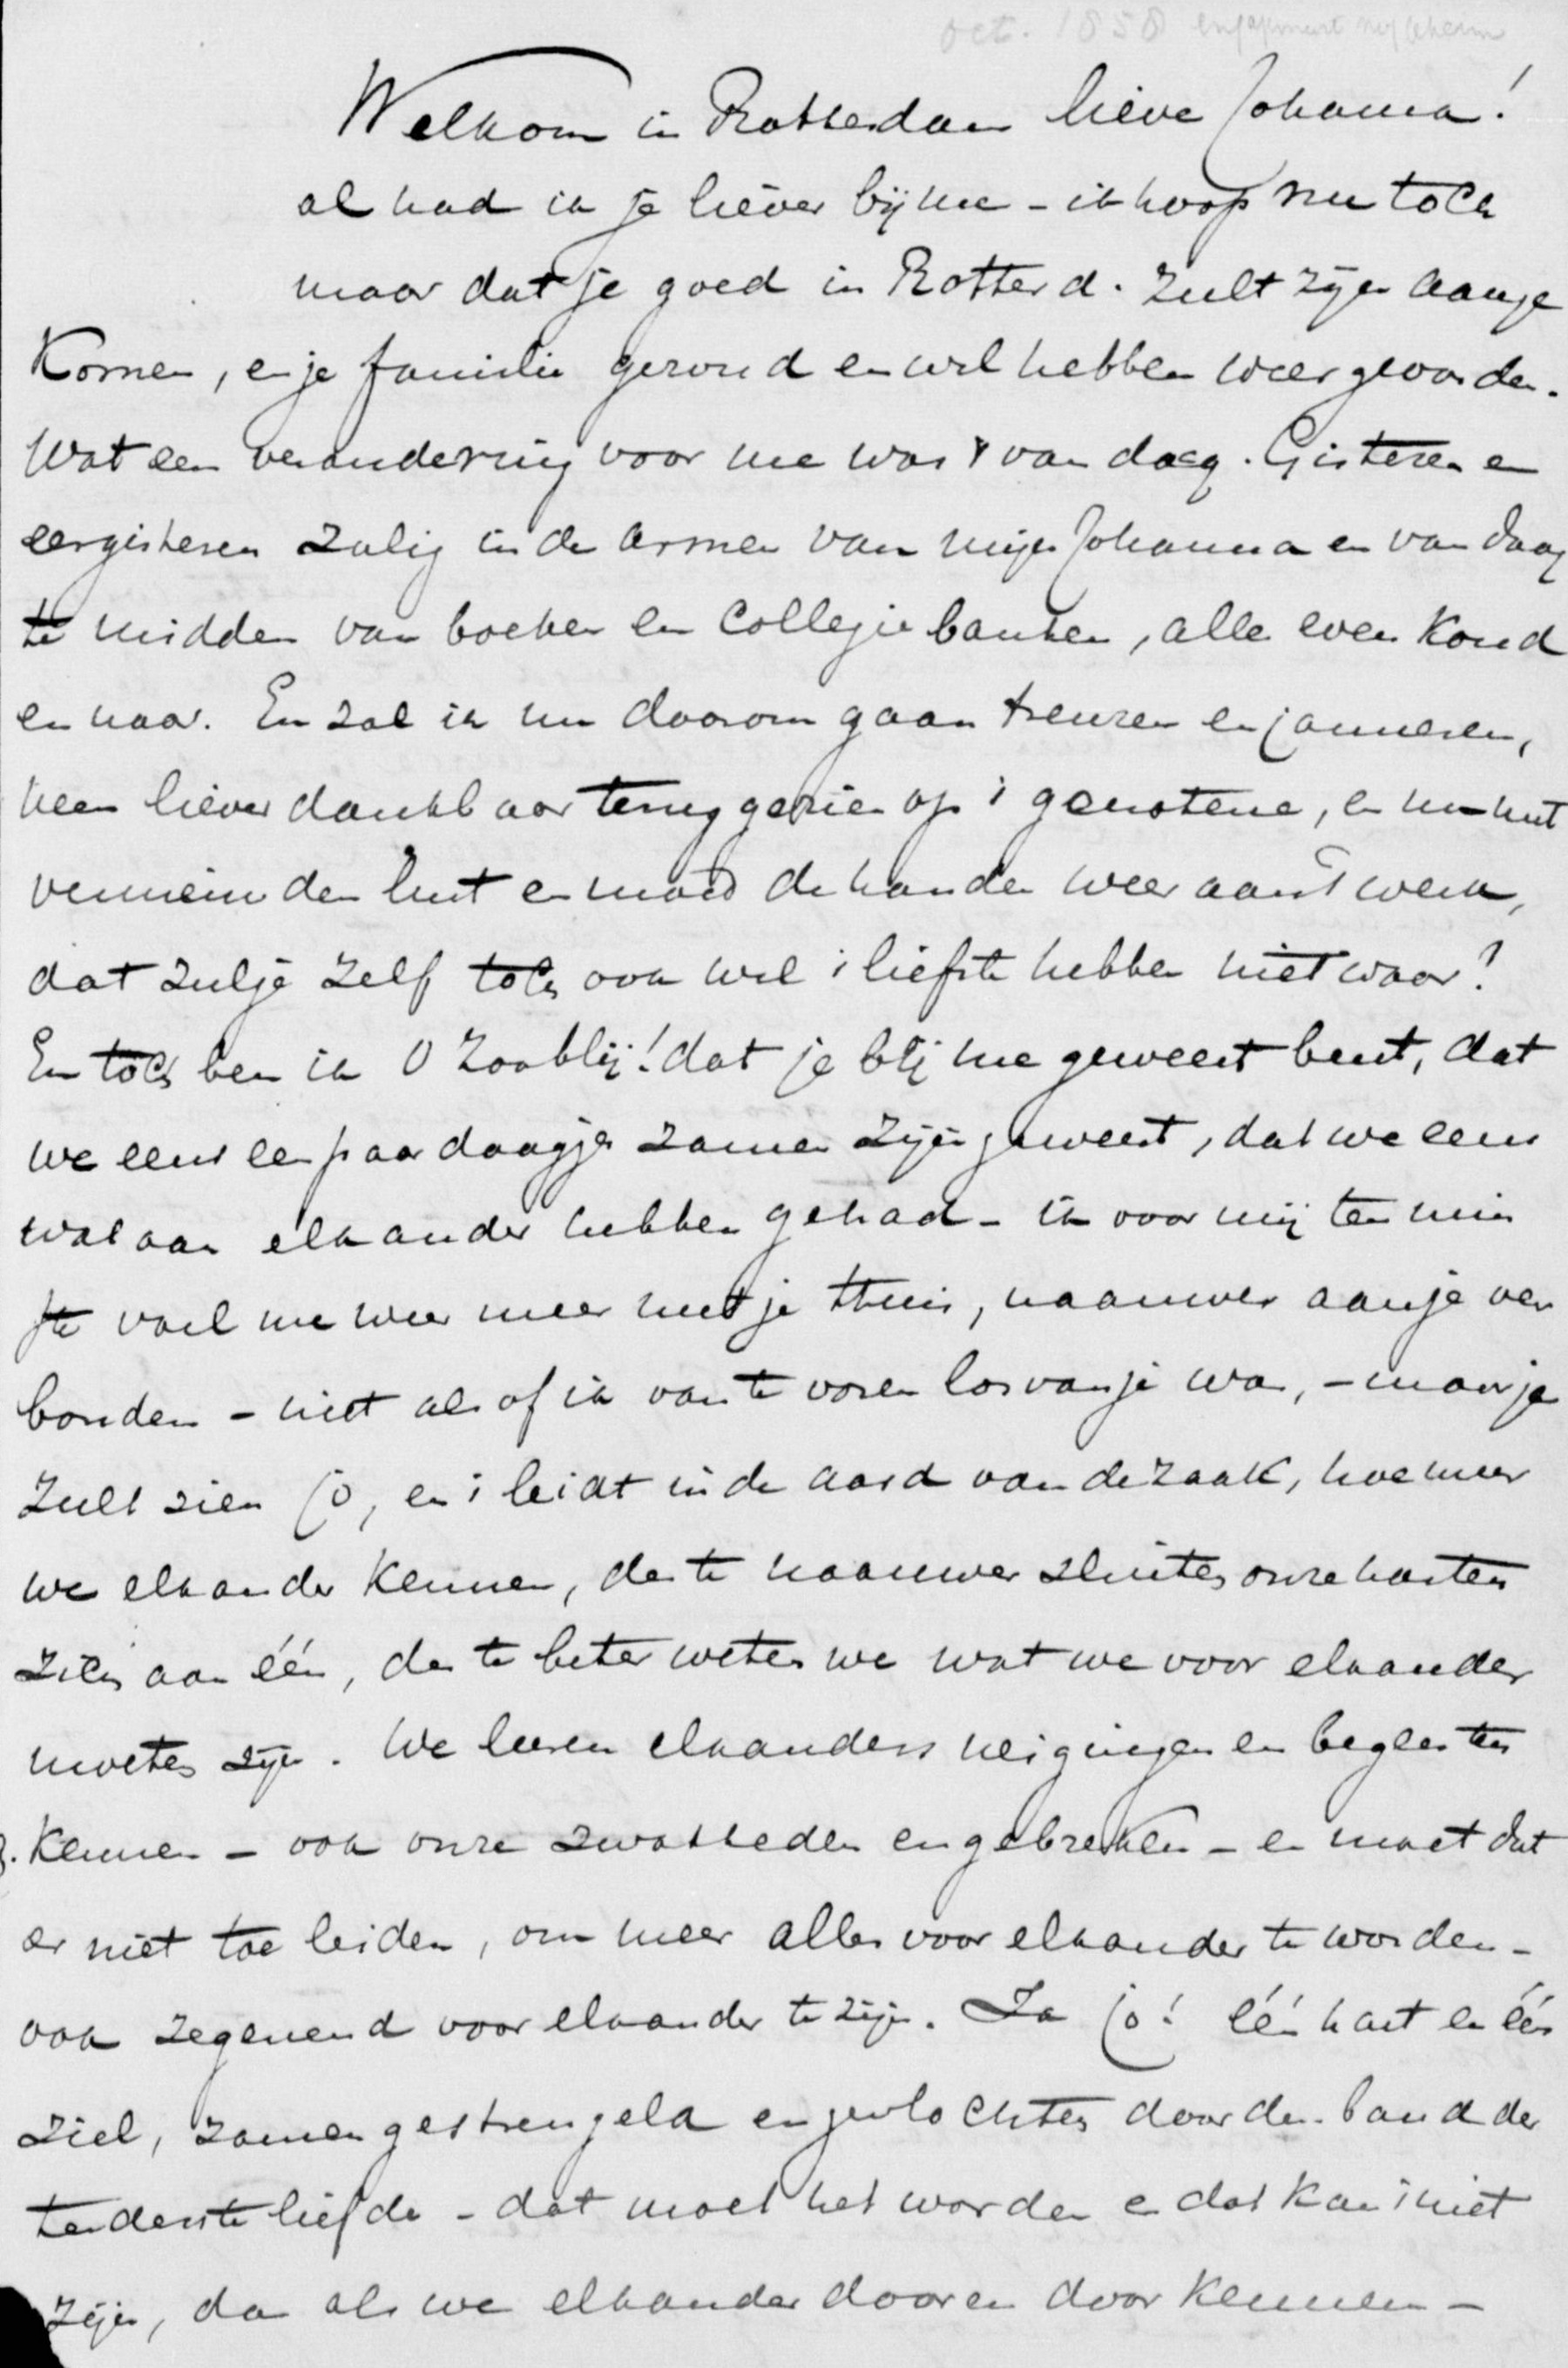 oct. 1858
Welkom in Rotterdam lieve Johanna!
al had ik je liever bij me - ik hoop nu toch
maar dat je goed in Rotterd. zult zijn aange
Komen, en je familie gezond en wel hebben weergevonden.
Wat een verandering voor me was i van daag. Gisteren en
eergisteren zalig in de armen van mijn Johanna en van daag
te midden van boeken en Collegie banken, alle even Koud
en naar. En zal ik nu daarom gaan treuren en jammeren,
neen liever dankbaar terug gezien op i genotene, en nu met
vernieuwden lust en moed de handen weer aan 't werk,
dat zulje zelf toch ook wel i liefste hebben niet waar?
En toch ben ik O Zoo blij! dat je bij me geweest bent, dat
we eens een paar daagjes zamen zijn geweest, dat we eens
wat aan elkander hebben gehad - ik voor mij ten min
ste voel me weer meer met je thuis, naauwer aan je ver
bonden - niet als of ik van te voren los van je was, - maar je
Zult zien Jo, en i leidt in de aard van de Zaak, hoe meer
we elkander Kennen, des te naauwer sluiten onze harten
zich aan één, des te beter weten we wat we voor elkander
moeten zijn. We leeren elkanders neigingen en begeerten
Kennen - ook onze zwakheden en gebreken - en moet dat
er niet toe leiden, om meer alles voor elkander te worden -
ook zegenend voor elkander te zijn. Ja Jo! één hart en één
Ziel, zamen gestrengeld en gevlochten door den band der
tederste liefde - dat moet het worden en dat Kan i niet
Zijn, dan als we elkander door en door Kennen -